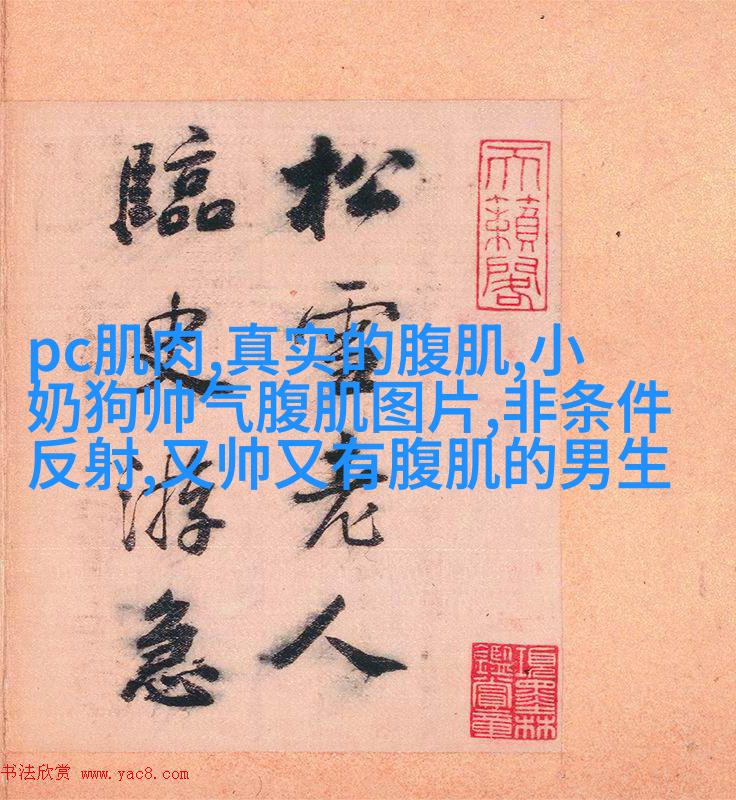 松雪老人
臨史游急
天籟閣
項墨林
鑑賞章
pc肌肉,真实的腹肌,小
奶狗帅气腹肌图片,非条件
反射,又帅又有腹肌的男生
书法欣赏 www.yac8.com